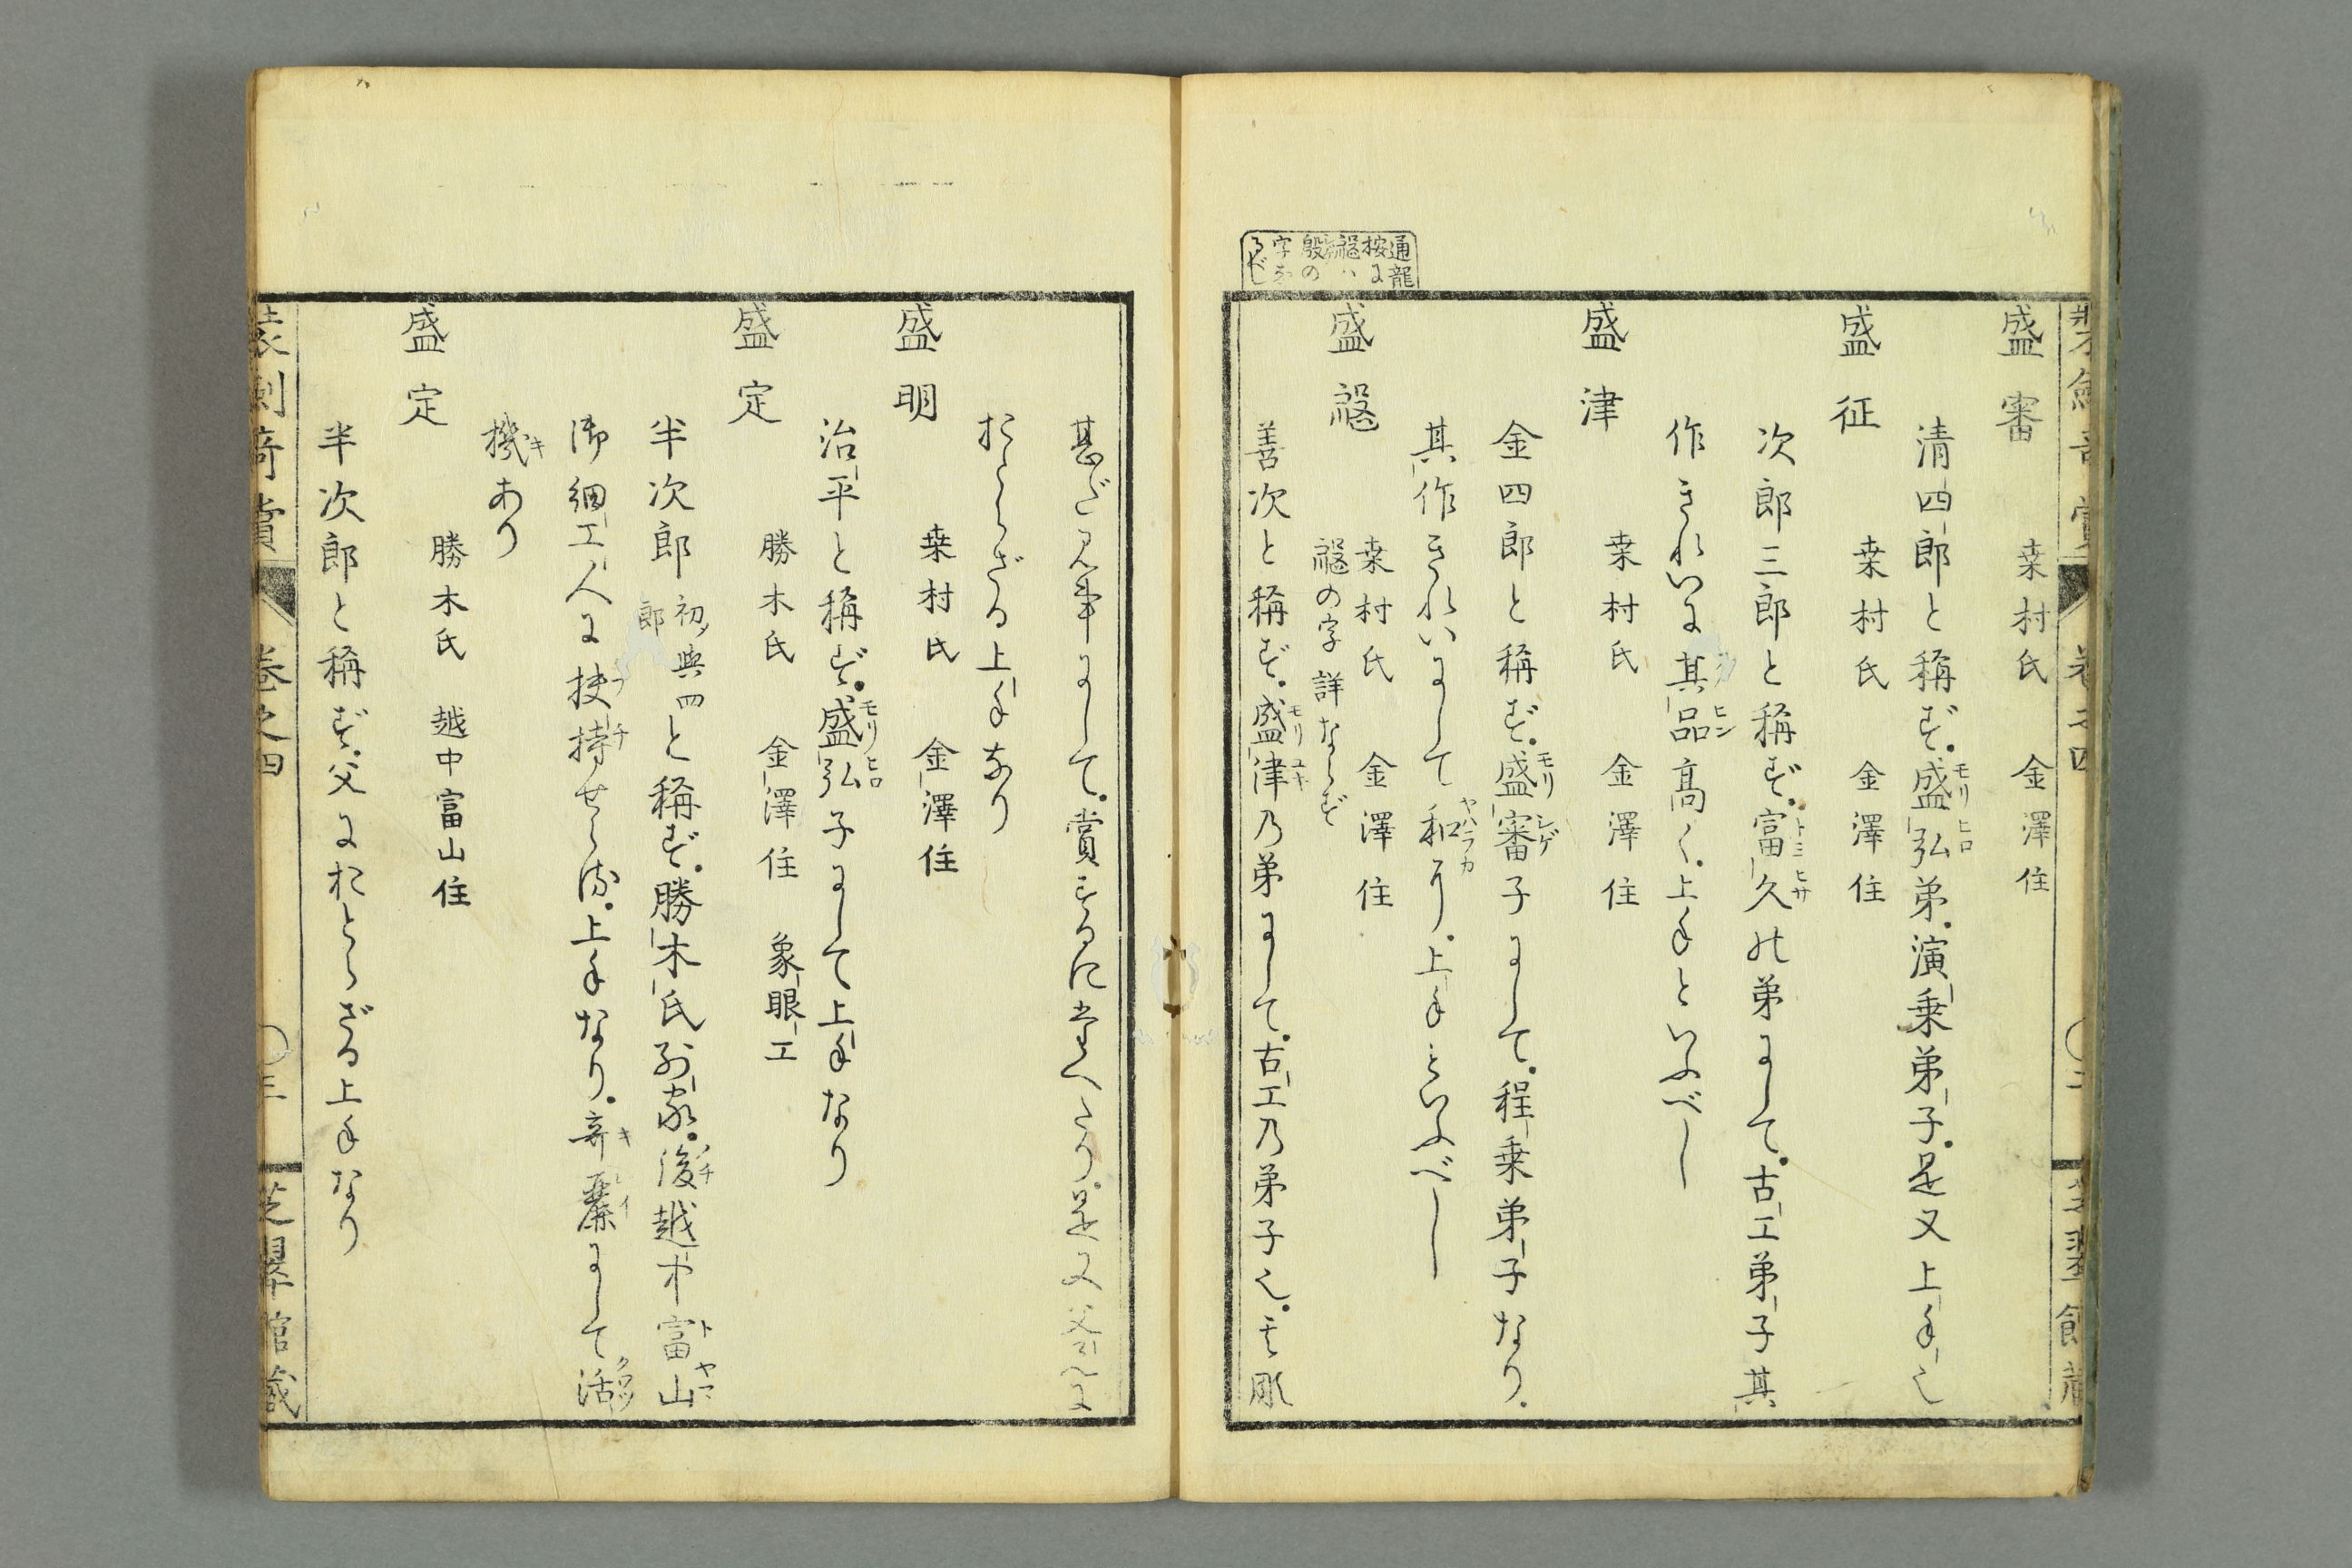 盛審　桒村氏　金澤住
清四郎と稱ず。盛弘弟。演乗弟子。是又上手也
盛征　桒村氏　金澤住
次郎三郎と稱ず。富久の弟にして。古工弟子其
作きれいに其品高く。上手といふべし
盛津　桒村氏　金澤住
金四郎と稱ず。盛審子にして。程乗弟子なり。
其作きれいにして和り。上手といふべし
通龍
按に
殷の
盛　桒村氏　金澤住
の字詳ならず
善次と稱ず。盛津乃弟にして。古工乃弟子也。其彫
甚だ見事にして。賞するに堪へたり。是又
おとらざる上手なり
盛明　桒村氏　金澤住
治平と稱ず。盛弘子にして上手なり
盛定　勝木氏　金澤住　象眼工
半次郎初ノ與四郎と稱ず。勝木氏別家。後越中富山
御細工人に扶持せらる。上手なり。奇麗にして活
機あり
盛定　勝木氏　越中富山住
半次郎と稱ず。父におとらざる上手なり
装劍奇賞　巻之四　芝翠館藏